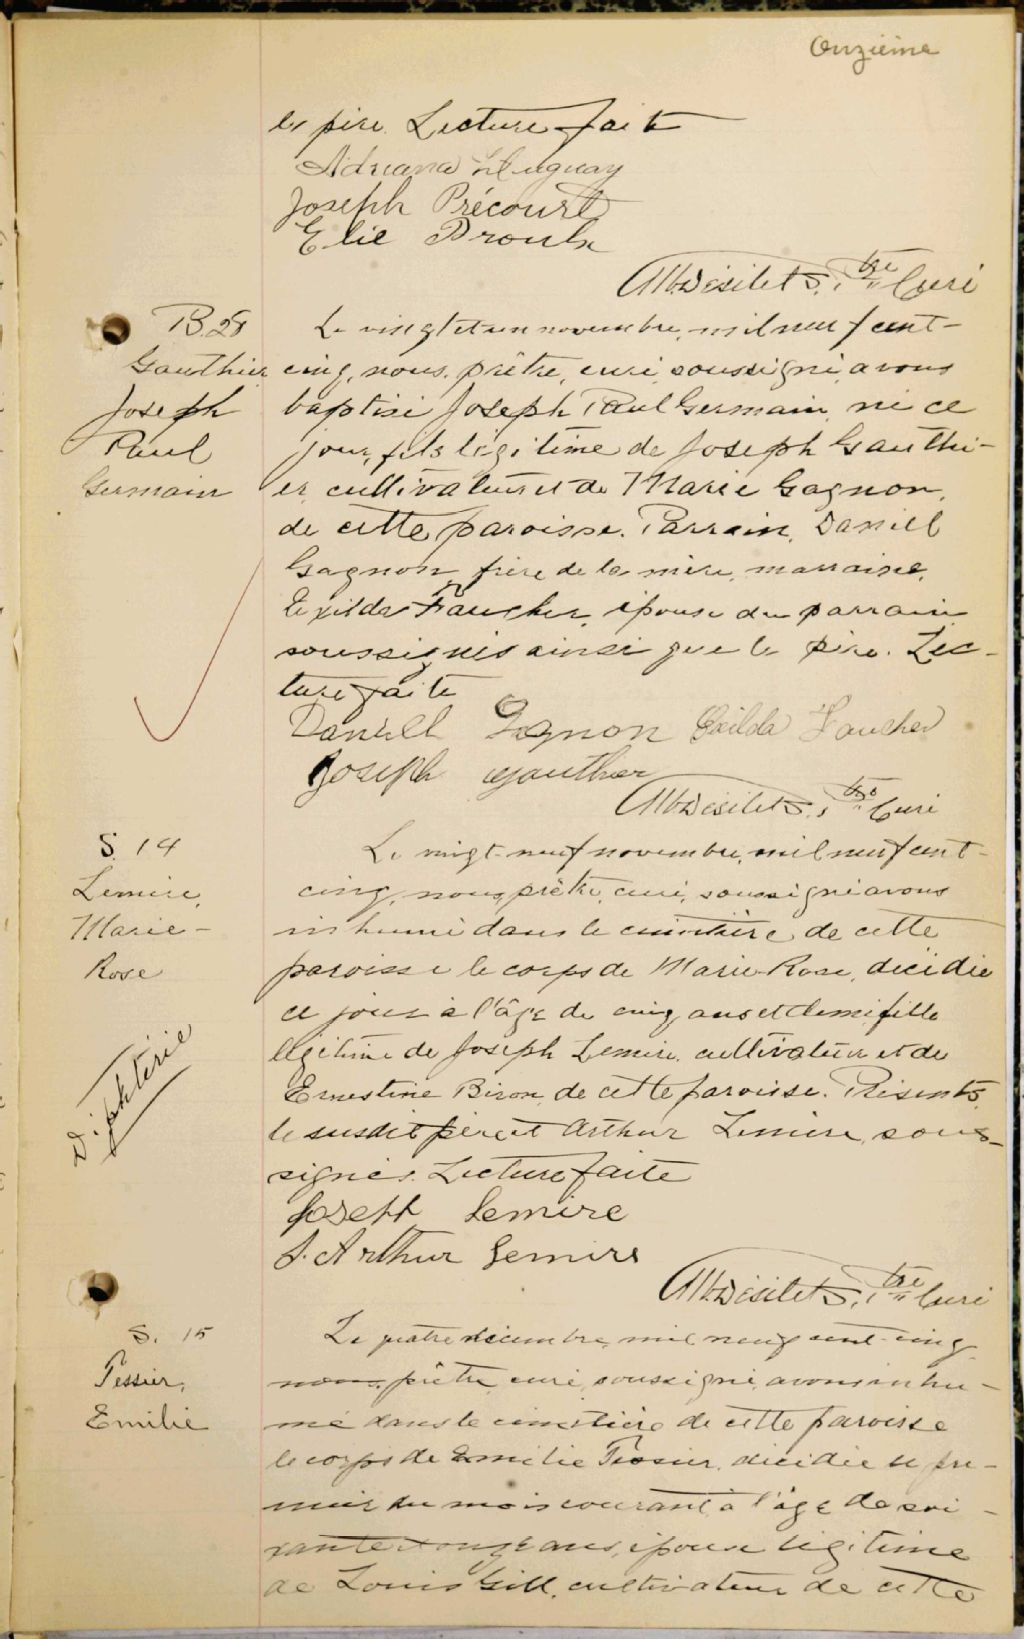 Onzième
le père. Lecture faite
Adriana
Joseph Précourt
Elie Proulx
Alb. Désilets, Ptre Curé
B. 28
Gauthier
Joseph
Paul
Germain
Le vingt et un novembre, mil neuf cent-
cinq, nous, prêtre, curé, soussigné, avons
baptisé Joseph Paul Germain, né ce
jour, fils légitime de Joseph Gauthi-
er, cultivateur et de Marie Gagnon,
de cette paroisse. Parrain, Daniel
Gagnon, frère de la mère, marraine,
Exilda Faucher, épouse du parrain
soussignés ainsi que le père. Lec-
ture faite
Daniel Gagnon Exilda Faucher
Joseph Gauthier
Alb. Désilets, Ptre Curé
S. 14
Lemire,
Marie-
Rose
Diphtérie
Le vingt-neuf novembre, mil neuf cent-
cinq, nous, prêtre, curé, soussigné avons
inhumé dans le cimetière de cette
paroisse le corps de Marie-Rose, décédée
ce jour à l'âge de cinq ans et demi, fille
légitime de Joseph Lemire, cultivateur et de
Ernestine Biron, de cette paroisse. Présents,
le susdit père et Arthur Lemire, sous-
signés. Lecture faite
Joseph Lemire
J. Arthur Lemire
Alb. Désilets, Ptre Curé
S. 15
Tessier,
Emilie
Le quatre décembre, mil neuf cent-cinq,
nous, prêtre, curé, soussigné, avons inhu-
mé dans le cimetière de cette paroisse
le corps de Emilie Tessier, décédée le pre-
mier du mois courant, à l'âge de soi-
xante et onze ans, épouse légitime
de Louis Gill, cultivateur de cette